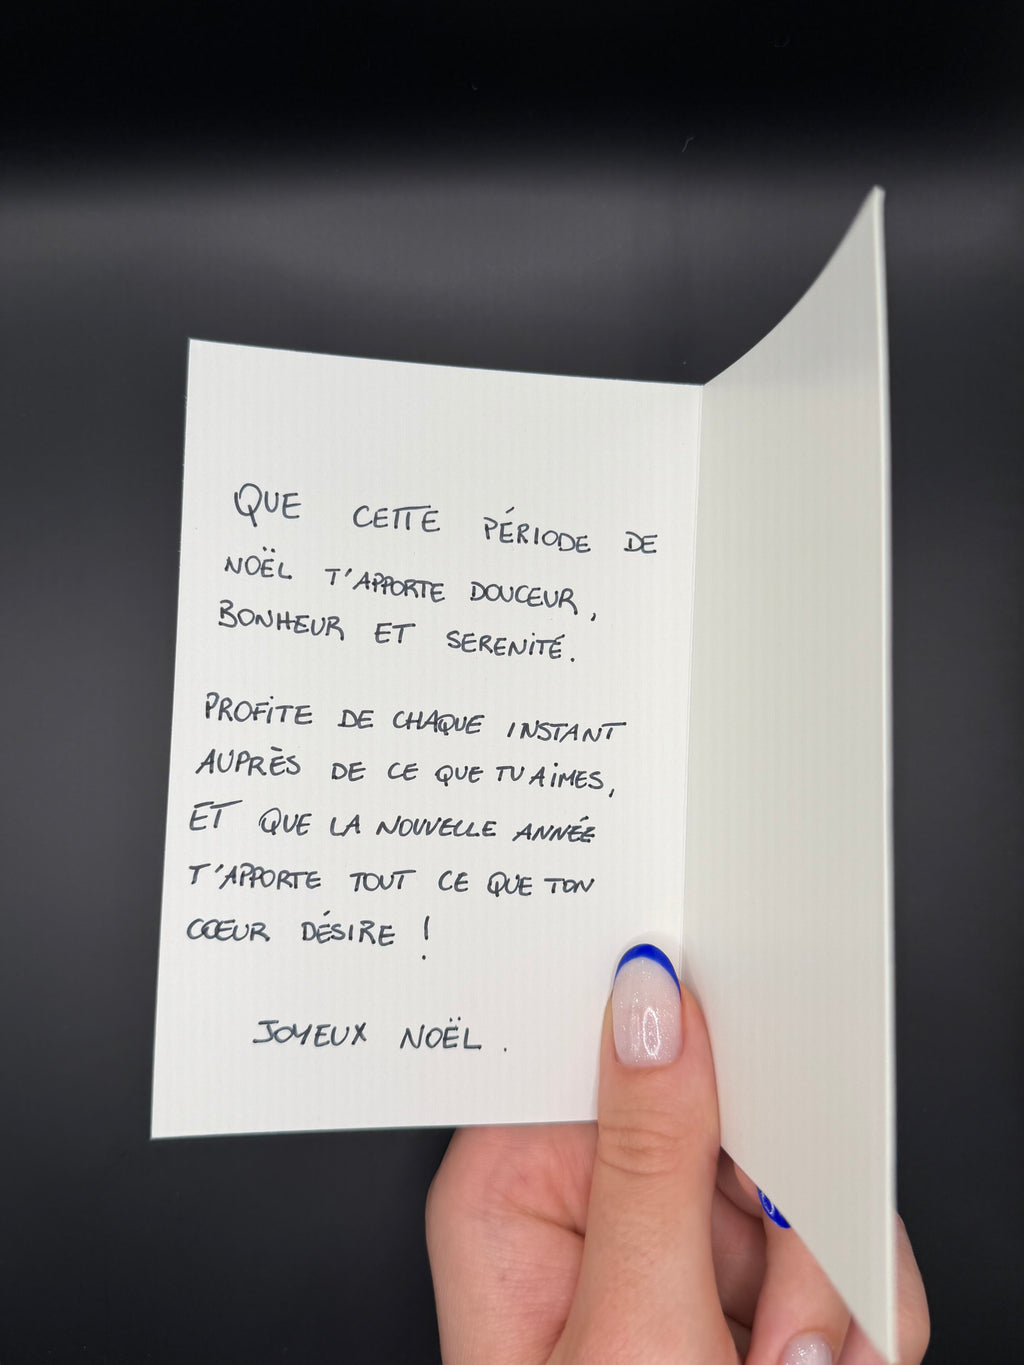 QUE CETTE PÉRIODE DE
NOËL T'APPORTE DOUCEUR,
BONHEUR ET SERENITÉ.
PROFITE DE CHAQUE INSTANT
AUPRÈS DE CE QUE TU AIMES,
ET QUE LA NOUVELLE ANNÉE
T'APPORTE TOUT CE QUE TON
CŒUR DÉSIRE !
JOYEUX NOËL.